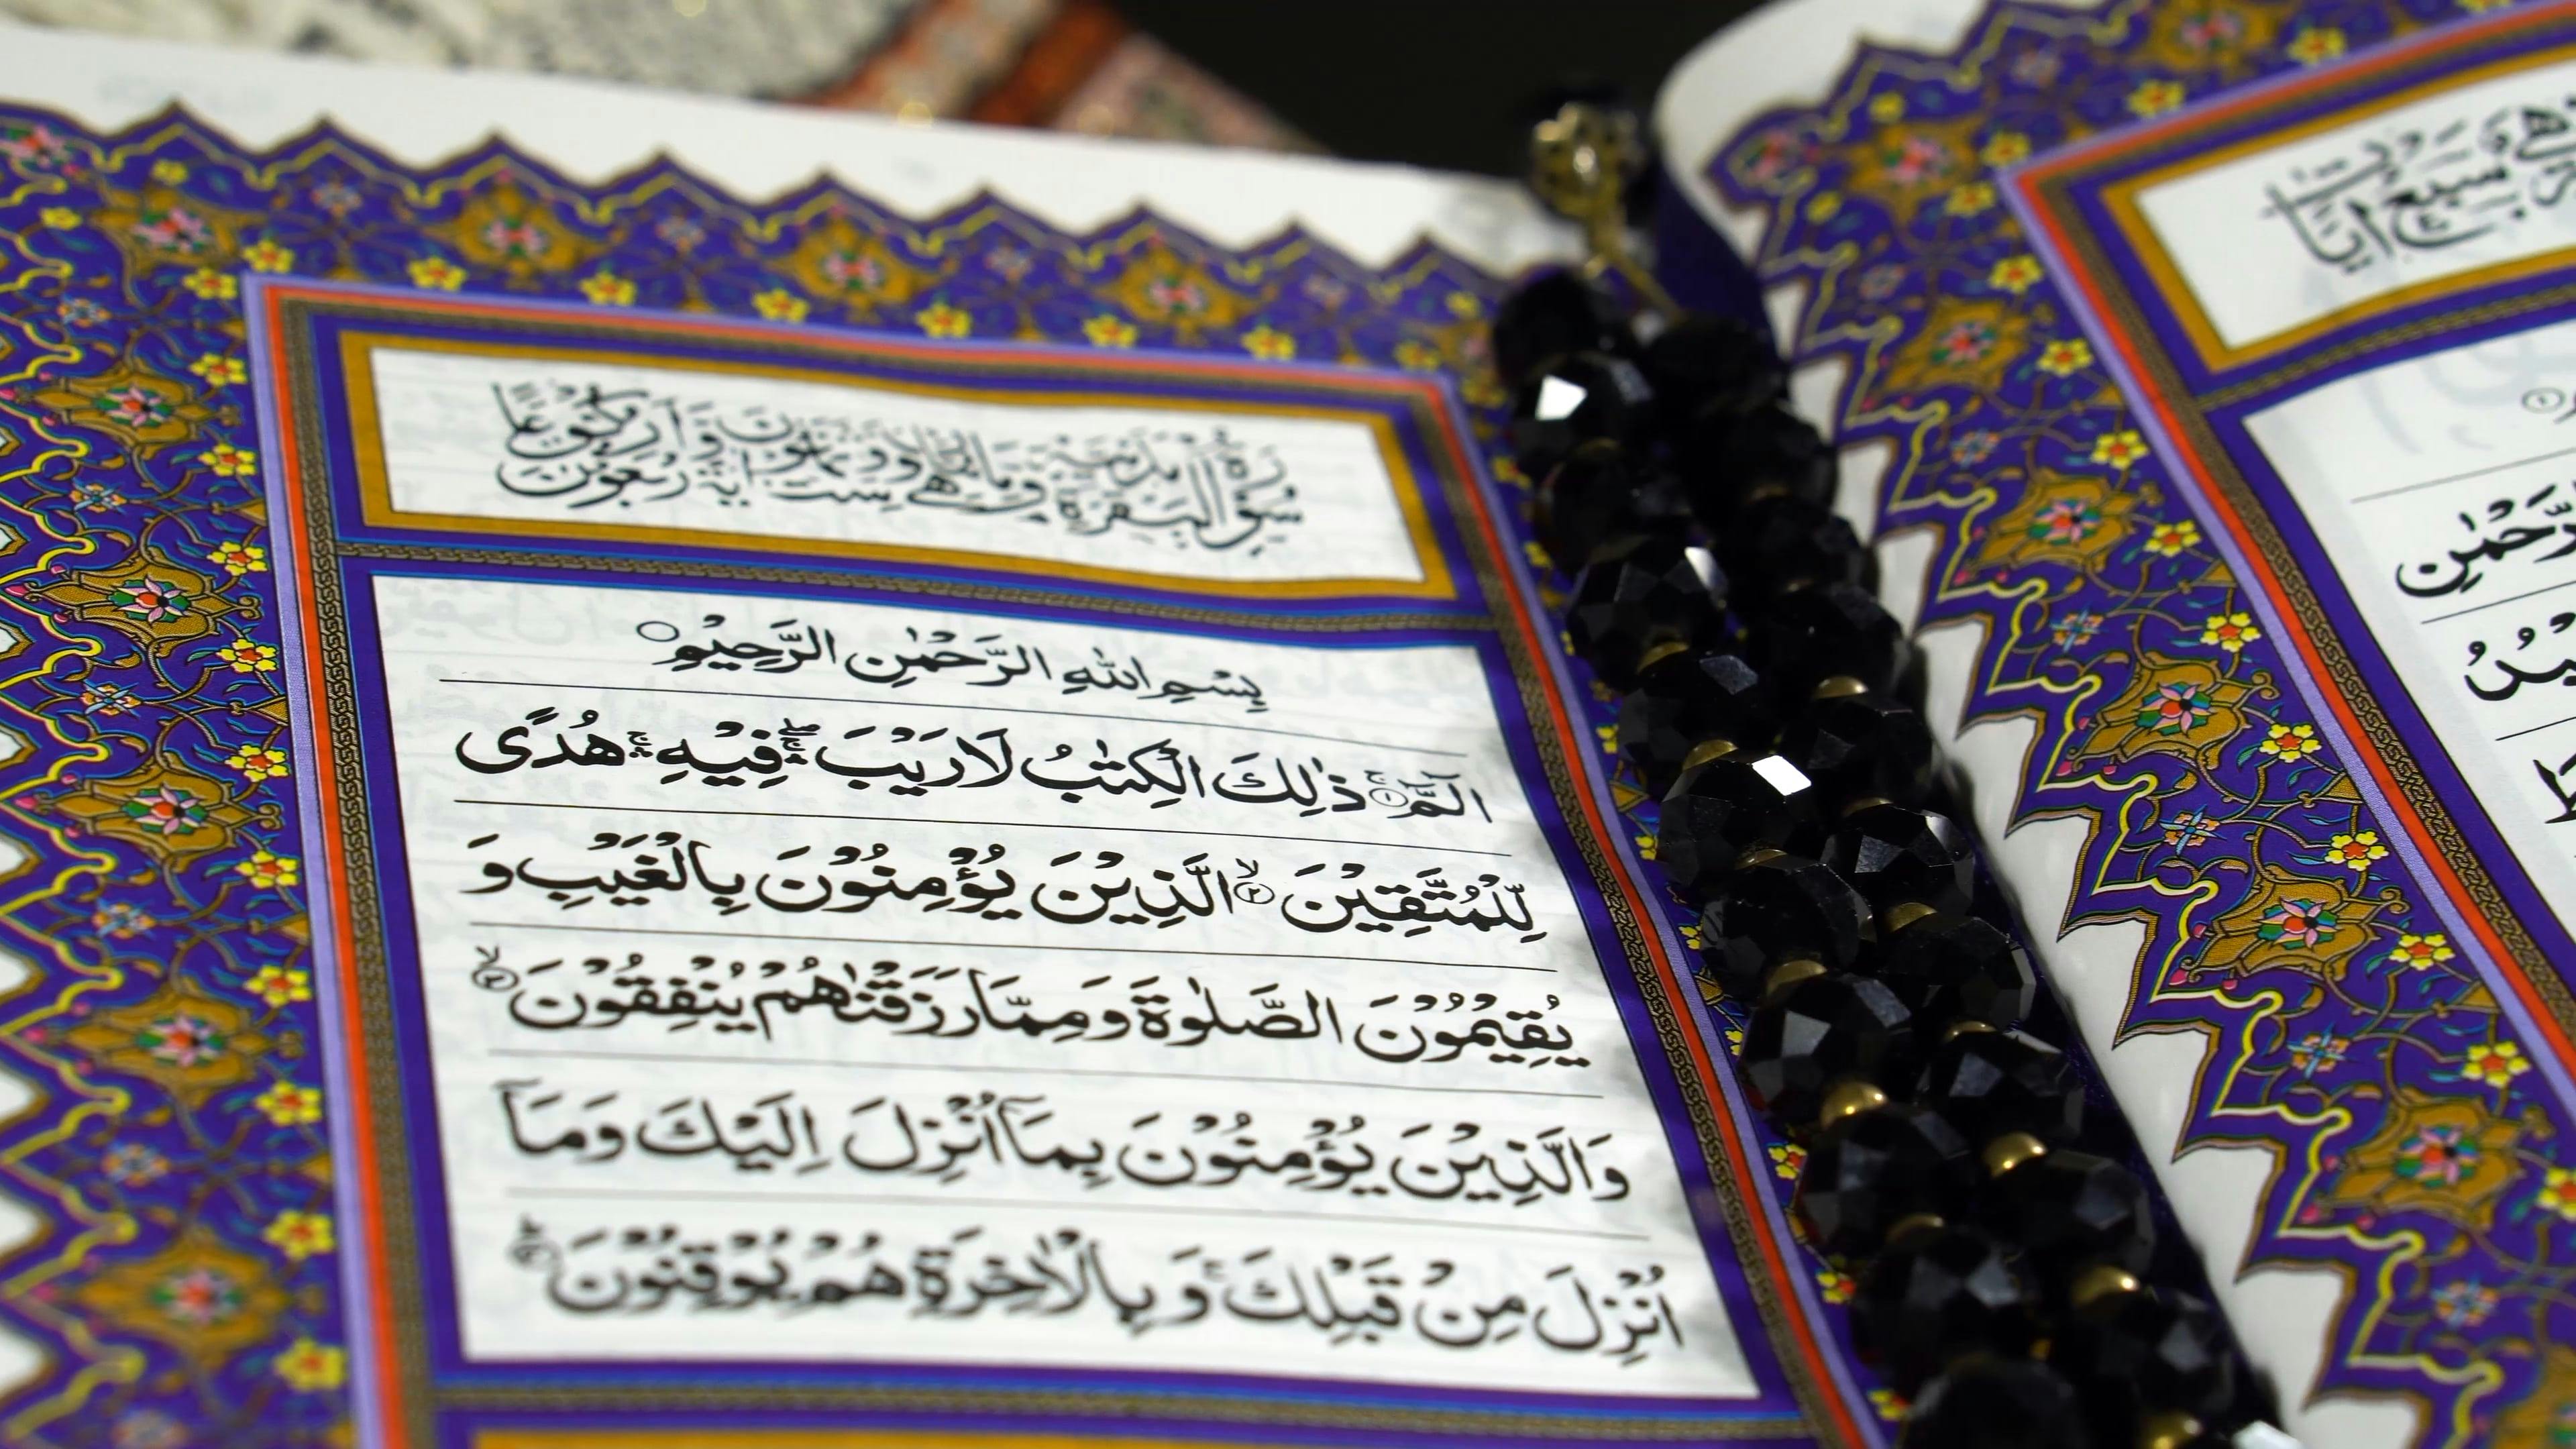 سُوْرَةُ الْبَقَرَةِ مَدَنِيَّةٌ وَهِيَ مِائَتَانِ وَسِتٌّ وَثَمَانُوْنَ اٰيَةً وَّاَرْبَعُوْنَ رُكُوْعًا
بِسْمِ اللّٰهِ الرَّحْمٰنِ الرَّحِيْمِ ۝
الٓمّٓ ۚ﴿۱﴾ ذٰلِكَ الْكِتٰبُ لَا رَيْبَ ۛۖۚ فِيْهِ ۛۚ هُدًى
لِّلْمُتَّقِيْنَ ۙ﴿۲﴾ الَّذِيْنَ يُؤْمِنُوْنَ بِالْغَيْبِ وَ
يُقِيْمُوْنَ الصَّلٰوةَ وَ مِمَّا رَزَقْنٰهُمْ يُنْفِقُوْنَ ۙ﴿۳﴾
وَالَّذِيْنَ يُؤْمِنُوْنَ بِمَاۤ اُنْزِلَ اِلَيْكَ وَمَاۤ
اُنْزِلَ مِنْ قَبْلِكَ ۚ وَ بِالْاٰخِرَةِ هُمْ يُوْقِنُوْنَ
سَبْعُ اٰيَاتٍ
الرَّحْمٰنِ